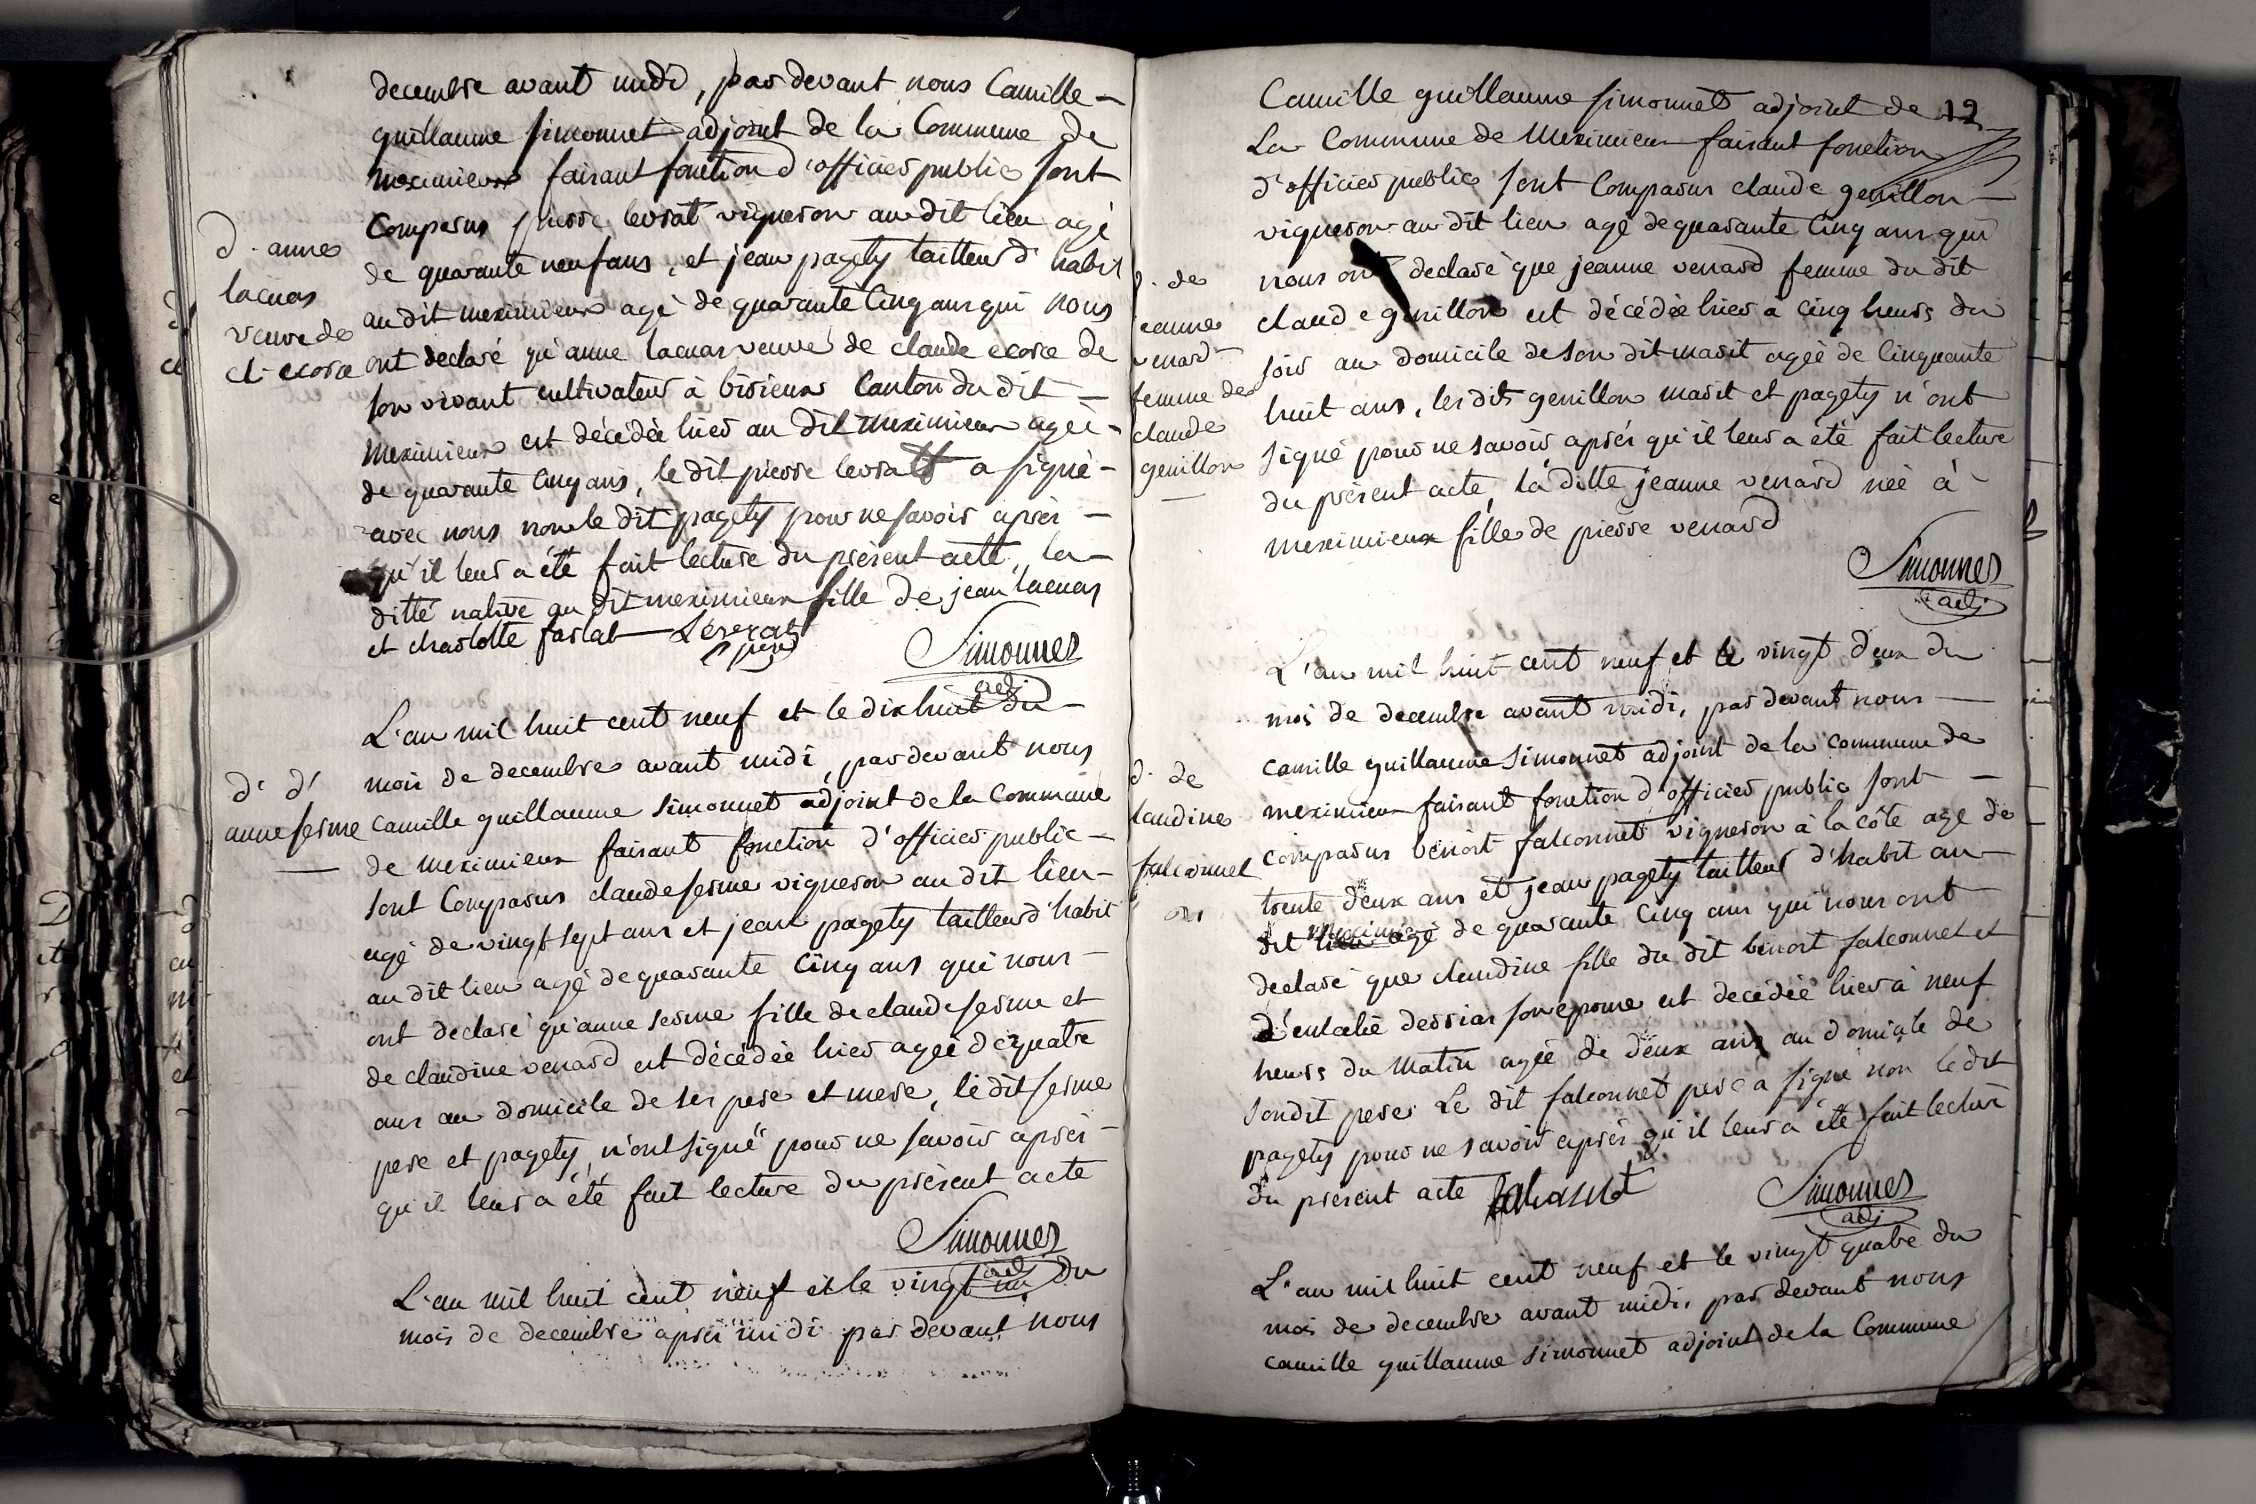 decembre avant midi, par devant nous Camille
guillaume simonnet adjoint de la Commune de
meximieux faisant fonction d'officier public sont
Comparus pierre levrat vigneron au dit lieu agé
de quarante neuf ans, et jean pagety tailleur d'habit
au dit meximieux agé de quarante Cinq ans qui nous
ont declaré qu'anne lacuas veuve de claude ecora de
son vivant cultivateur à birieux Canton du dit
meximieux est décédée hier au dit meximieux agée
de quarante Cinq ans, le dit pierre levratt a signé
avec nous non le dit pagety pour ne savoir après
qu'il leur a été fait lecture du présent acte, la
ditte native au dit meximieux fille de jean lacuas
et charlotte farlat Leverat
pierre
Simonnet
adj.
d. anne
lacuas
veuve de
cl. ecora
L'an mil huit cent neuf et le dix huit du
mois de decembre avant midi, par devant nous
camille guillaume simonnet adjoint de la Commune
de meximieux faisant fonction d'officier public
sont Comparus claude serme vigneron au dit lieu
agé de vingt sept ans et jean pagety tailleur d'habit
au dit lieu agé de quarante Cinq ans qui nous
ont declaré qu'anne serme fille de claude serme et
de claudine venard est décédée hier agée de quatre
ans au domicile de ses pere et mere, le dit serme
pere et pagety n'ont signé pour ne savoir après
qu'il leur a été fait lecture du présent acte
Simonnet
adj
d. d'
anne serme
L'an mil huit cent neuf et le vingt un du
mois de decembre après midi par devant nous
12
Camille guillaume simonnet adjoint de
La Commune de Meximieux faisant fonction
d'officier public sont Comparus claude genillon
vigneron au dit lieu agé de quarante Cinq ans qui
nous ont declaré que jeanne venard femme du dit
claude genillon est décédée hier à cinq heurs du
soir au domicile de son dit marit agée de Cinquante
huit ans, les dits genillon marit et pagety n'ont
signé pour ne savoir après qu'il leur a été fait lecture
du présent acte, la ditte jeanne venard née à
meximieux fille de pierre venard
Simonnet
adj.
d. de
jeanne
venard
femme de
claude
genillon
L'an mil huit cent neuf et le vingt deux du
mois de decembre avant midi, par devant nous
camille guillaume simonnet adjoint de la commune de
meximieux faisant fonction d'officier public sont
comparus benoit falconnet vigneron à la côte agé de
trente deux ans et jean pagety tailleur d'habit au
dit meximieux agé de quarante Cinq ans qui nous ont
declaré que claudine fille du dit benoit falconnet et
d'eulalie derrias son épouse est decédée hier à neuf
heurs du matin agée de deux ans au domicile de
son dit pere. Le dit falconnet pere a signé non le dit
pagety pour ne savoir après qu'il leur a été fait lecture
du présent acte
Simonnet
adj
d. de
claudine
falconnet
L'an mil huit cent neuf et le vingt quatre du
mois de decembre avant midi, par devant nous
camille guillaume simonnet adjoint de la Commune